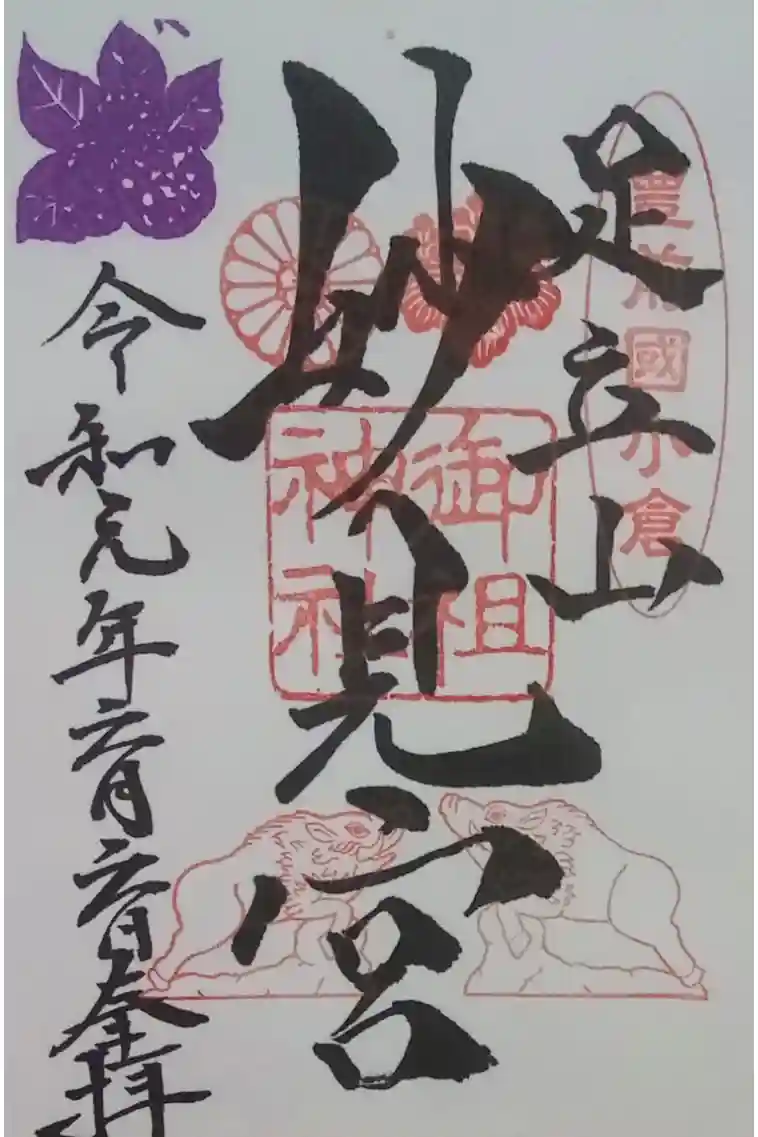 豊前國小倉
足立山
妙見宮
御祖神社
令和元年六月六日奉拝